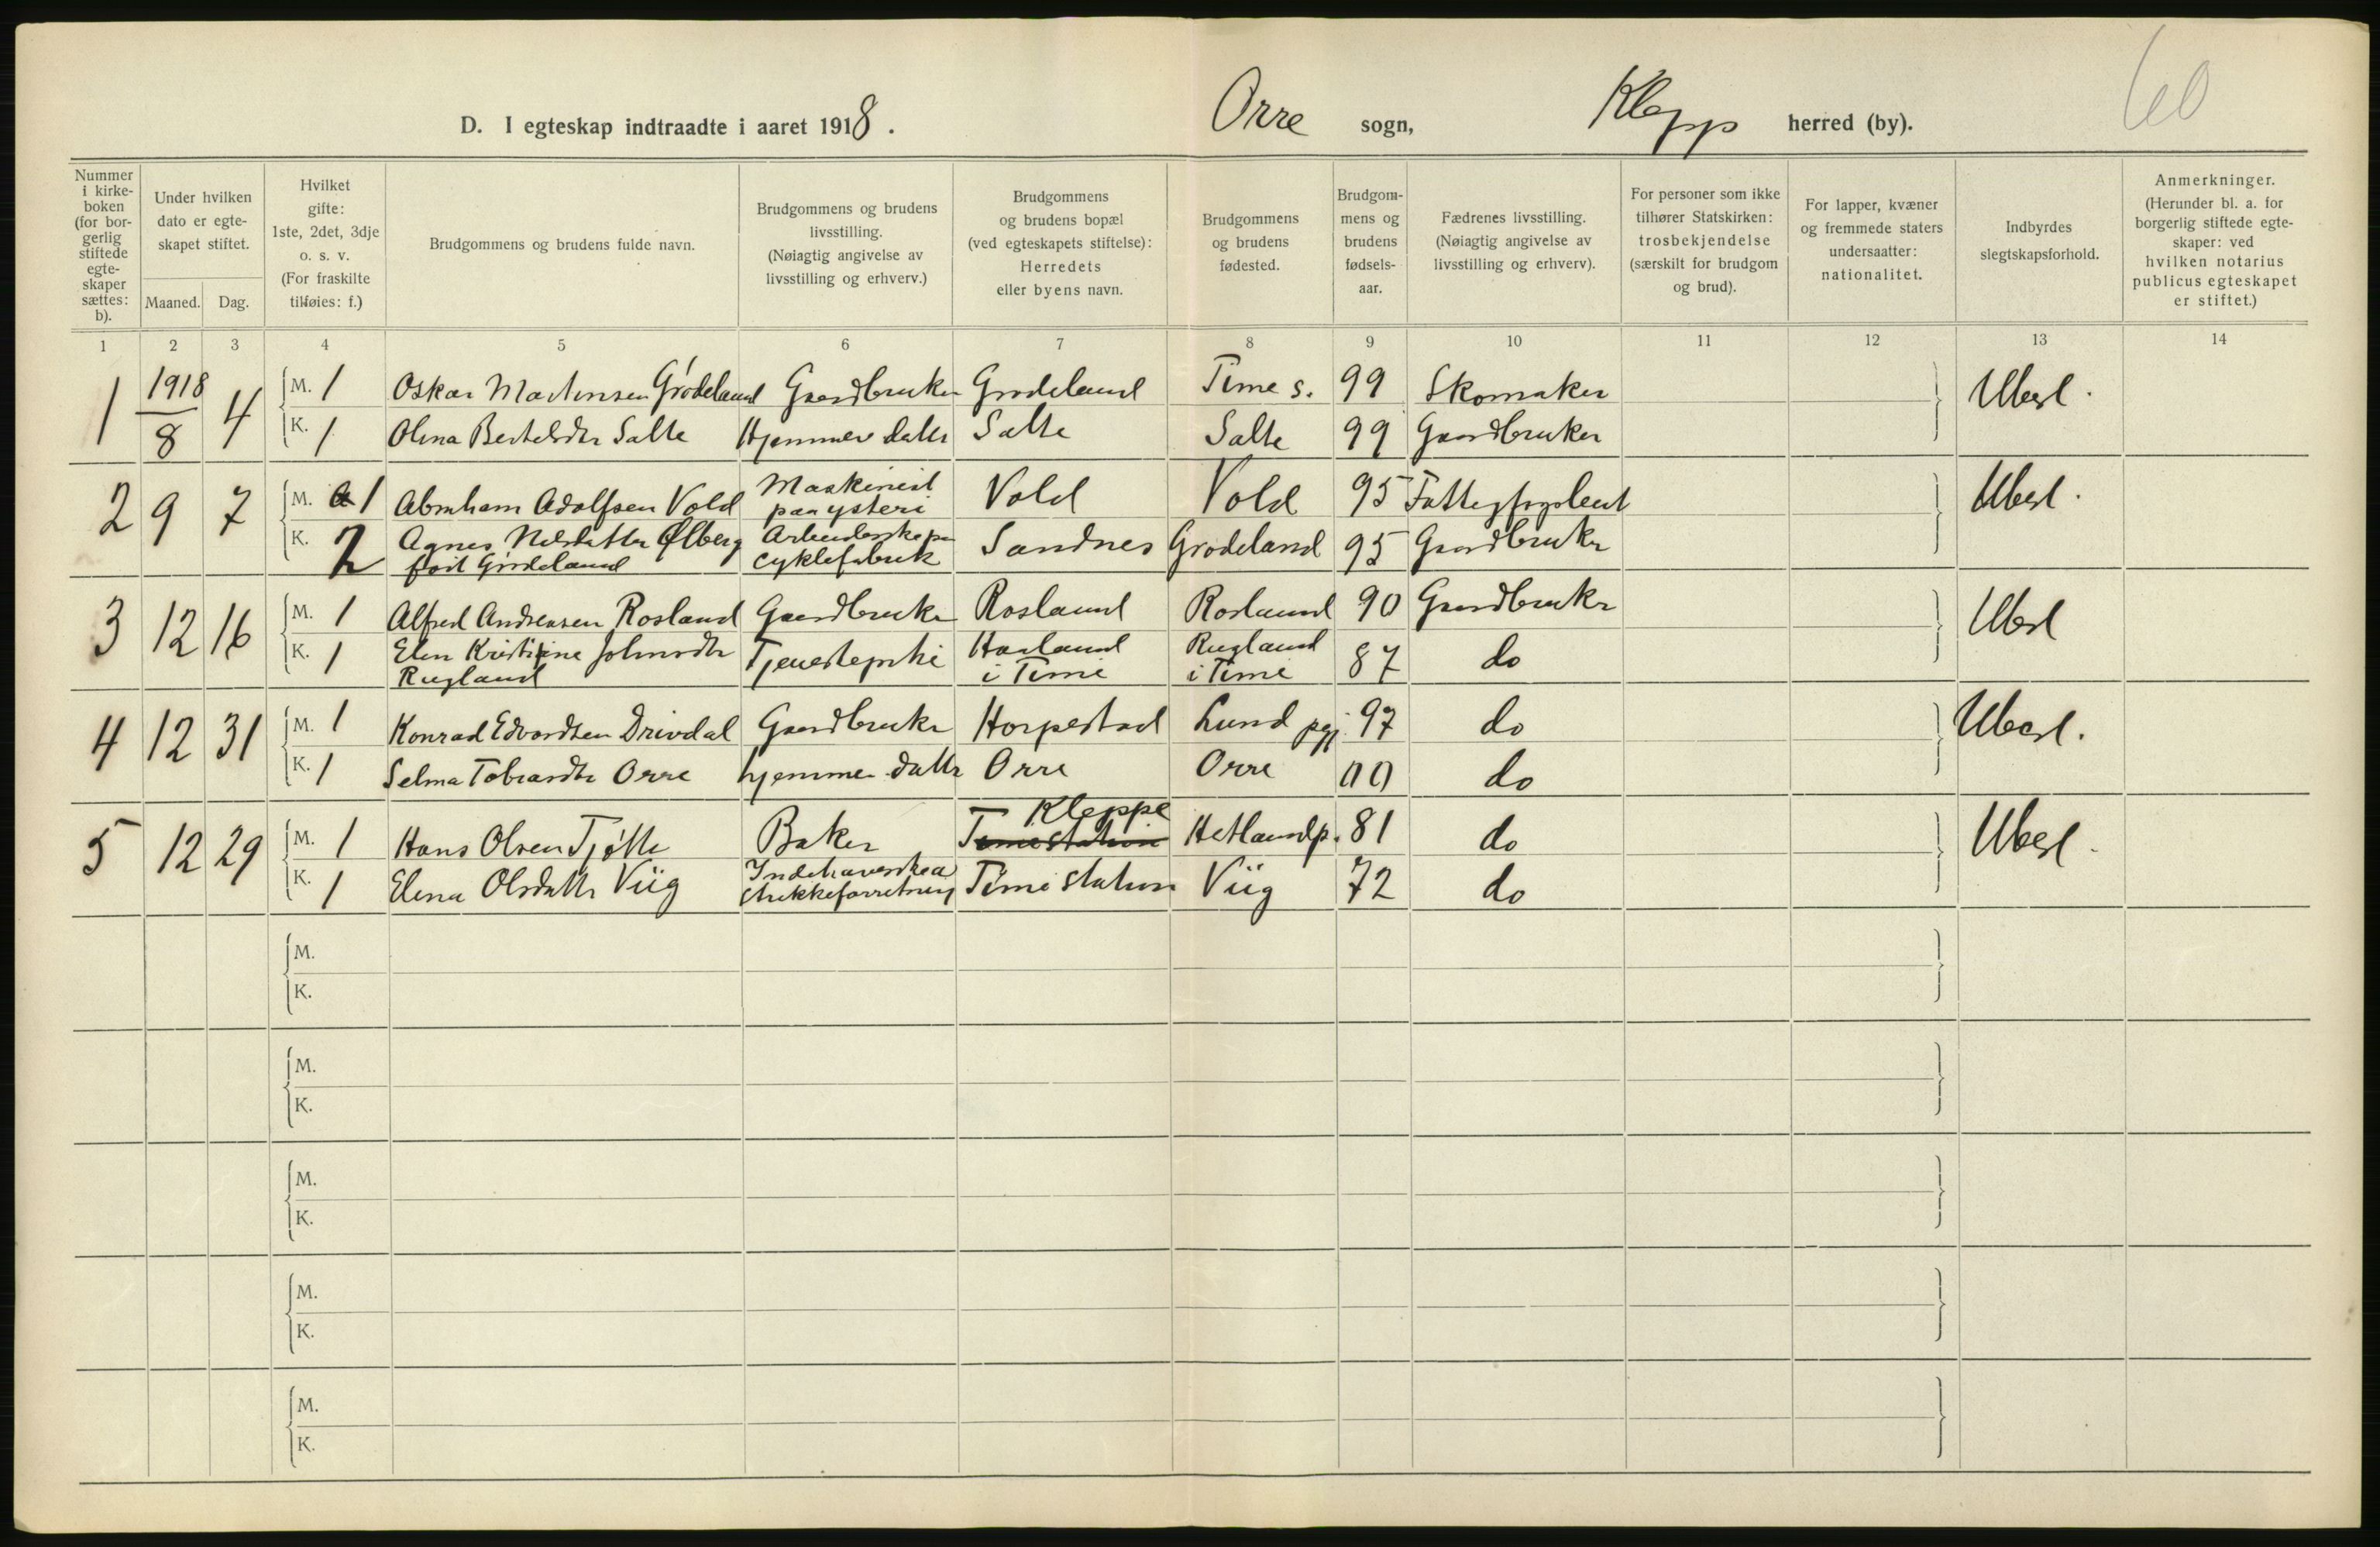 60
D. I egteskap indtraadte i aaret 1918. Orre sogn, Klepp herred (by).
Nummer i kirke-boken (for bor-gerlig stiftede egte-skaper sættes: b).
Under hvilken dato er egte-skapet stiftet.
Maaned. Dag.
Hvilket gifte: 1ste, 2det, 3dje o. s. v. (For fraskilte tilføies: f.)
Brudgommens og brudens fulde navn.
Brudgommens og brudens livsstilling. (Nøiagtig angivelse av livsstilling og erhverv.)
Brudgommens og brudens bopæl (ved egteskapets stiftelse): Herredets eller byens navn.
Brudgommens og brudens fødested.
Brudgom-mens og brudens fødsels-aar.
Fædrenes livsstilling. (Nøiagtig angivelse av livsstilling og erhverv).
For personer som ikke tilhører Statskirken: trosbekjendelse (særskilt for brudgom og brud).
For lapper, kvæner og fremmede staters undersaatter: nationalitet.
Indbyrdes slegtskapsforhold.
Anmerkninger. (Herunder bl. a. for borgerlig stiftede egte-skaper: ved hvilken notarius publicus egteskapet er stiftet.)
1 2 3 4 5 6 7 8 9 10 11 12 13 14
1 1918 8 4 M. 1 Oskar Martinsen Grödeland Gaardbruker Grodeland Time s. 99 Skomaker Ubesl.
K. 1 Olina Bertelsdtr Salte Hjemmev datter Salte Salte 99 Gaardbruker
2 9 7 M. 1 Abraham Adolfsen Vold Maskinist paa ysteri Vold Vold 95 Ubesl.
K. 2 Agnes Nilsdatter Ølberg født Grödeland Arbeiderske paa cyklefabrik Sandnes Grodeland 95 Gaardbruker
3 12 16 M. 1 Alfred Andreasen Rosland Gaardbruker Rosland Rosland 90 Gaardbruker Ubesl
K. 1 Elen Kristine Johnsdtr Rugland Tjenestepike Haaland i Time Rugland i Time 87 do
4 12 31 M. 1 Konrad Edvardsen Drivdal Gaardbruker Horpestad Lund pgj. 97 do Ubesl.
K. 1 Selma Tobiasdtr Orre hjemmev. datter Orre Orre 00 do
5 12 29 M. 1 Hans Olsen Tjötte Baker Time station Kleppe Hetland p. 81 do Ubesl.
K. 1 Elena Olsdatter Viig Indehaverske a strikkeforretning Time station Viig 72 do
M.
K.
M.
K.
M.
K.
M.
K.
M.
K.